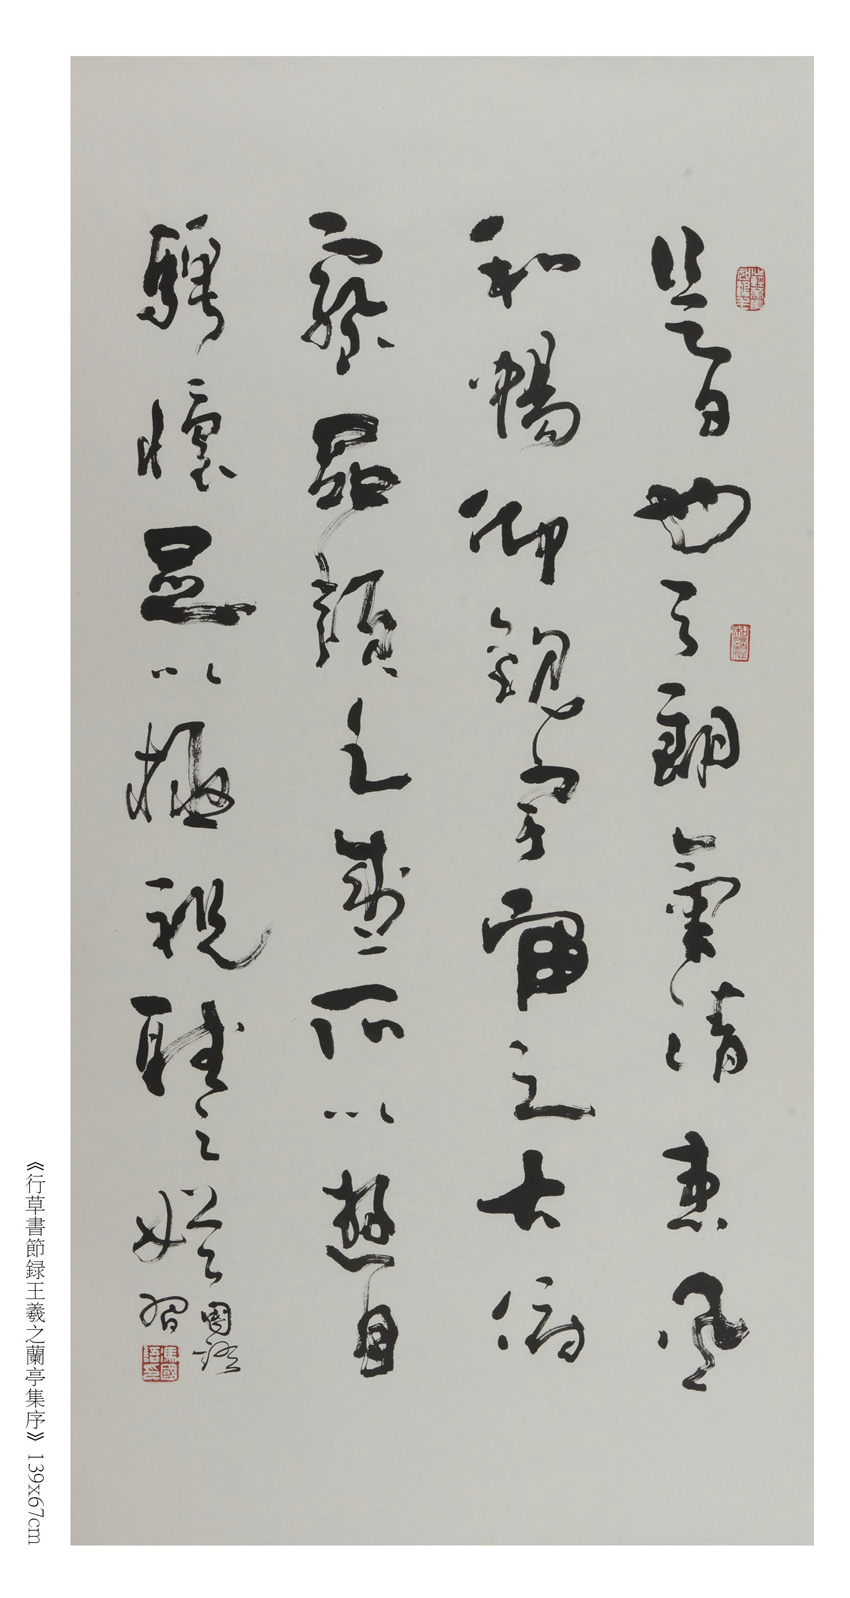 是日也天朗氣清惠風
和暢仰觀宇宙之大俯
察品類之盛所以遊目
騁懷足以極視聽之娛
國語
馬國語印
《行草書節録王羲之蘭亭集序》 139x67cm